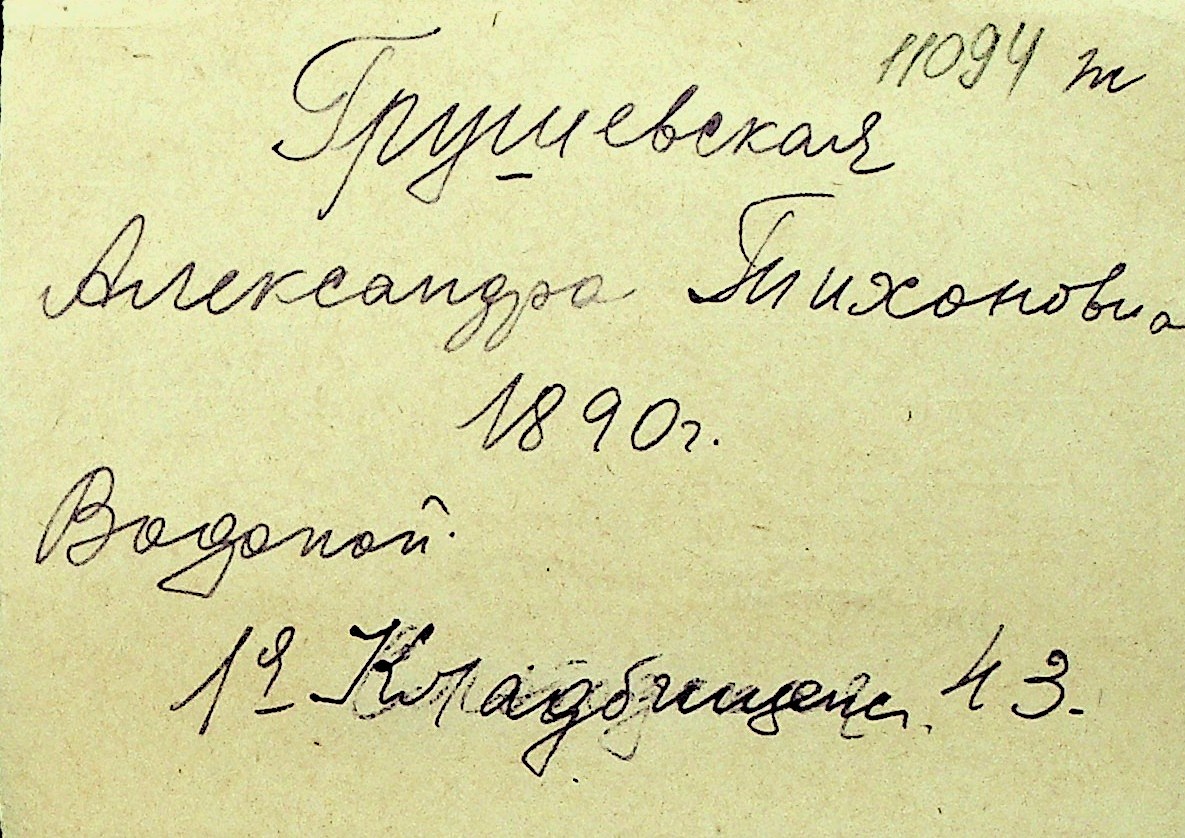 11094 т
Грушевская
Александра Тихоновна
1890г.
Водопой.
1я Кладбищенс. 43.